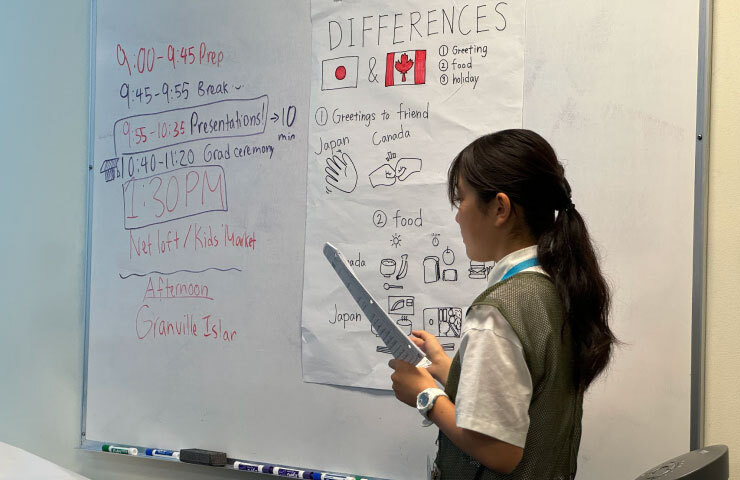 9:00-9:45 Prep
9:45-9:55 Break
9:55-10:35 Presentations! → 10 min
10:40-11:20 Grad ceremony
1:30PM
Net loft / Kids Market
Afternoon
Granville Islan
DIFFERENCES
&
① Greeting
② food
③ holiday
① Greetings to friend
Japan Canada
② food
nada
Japan